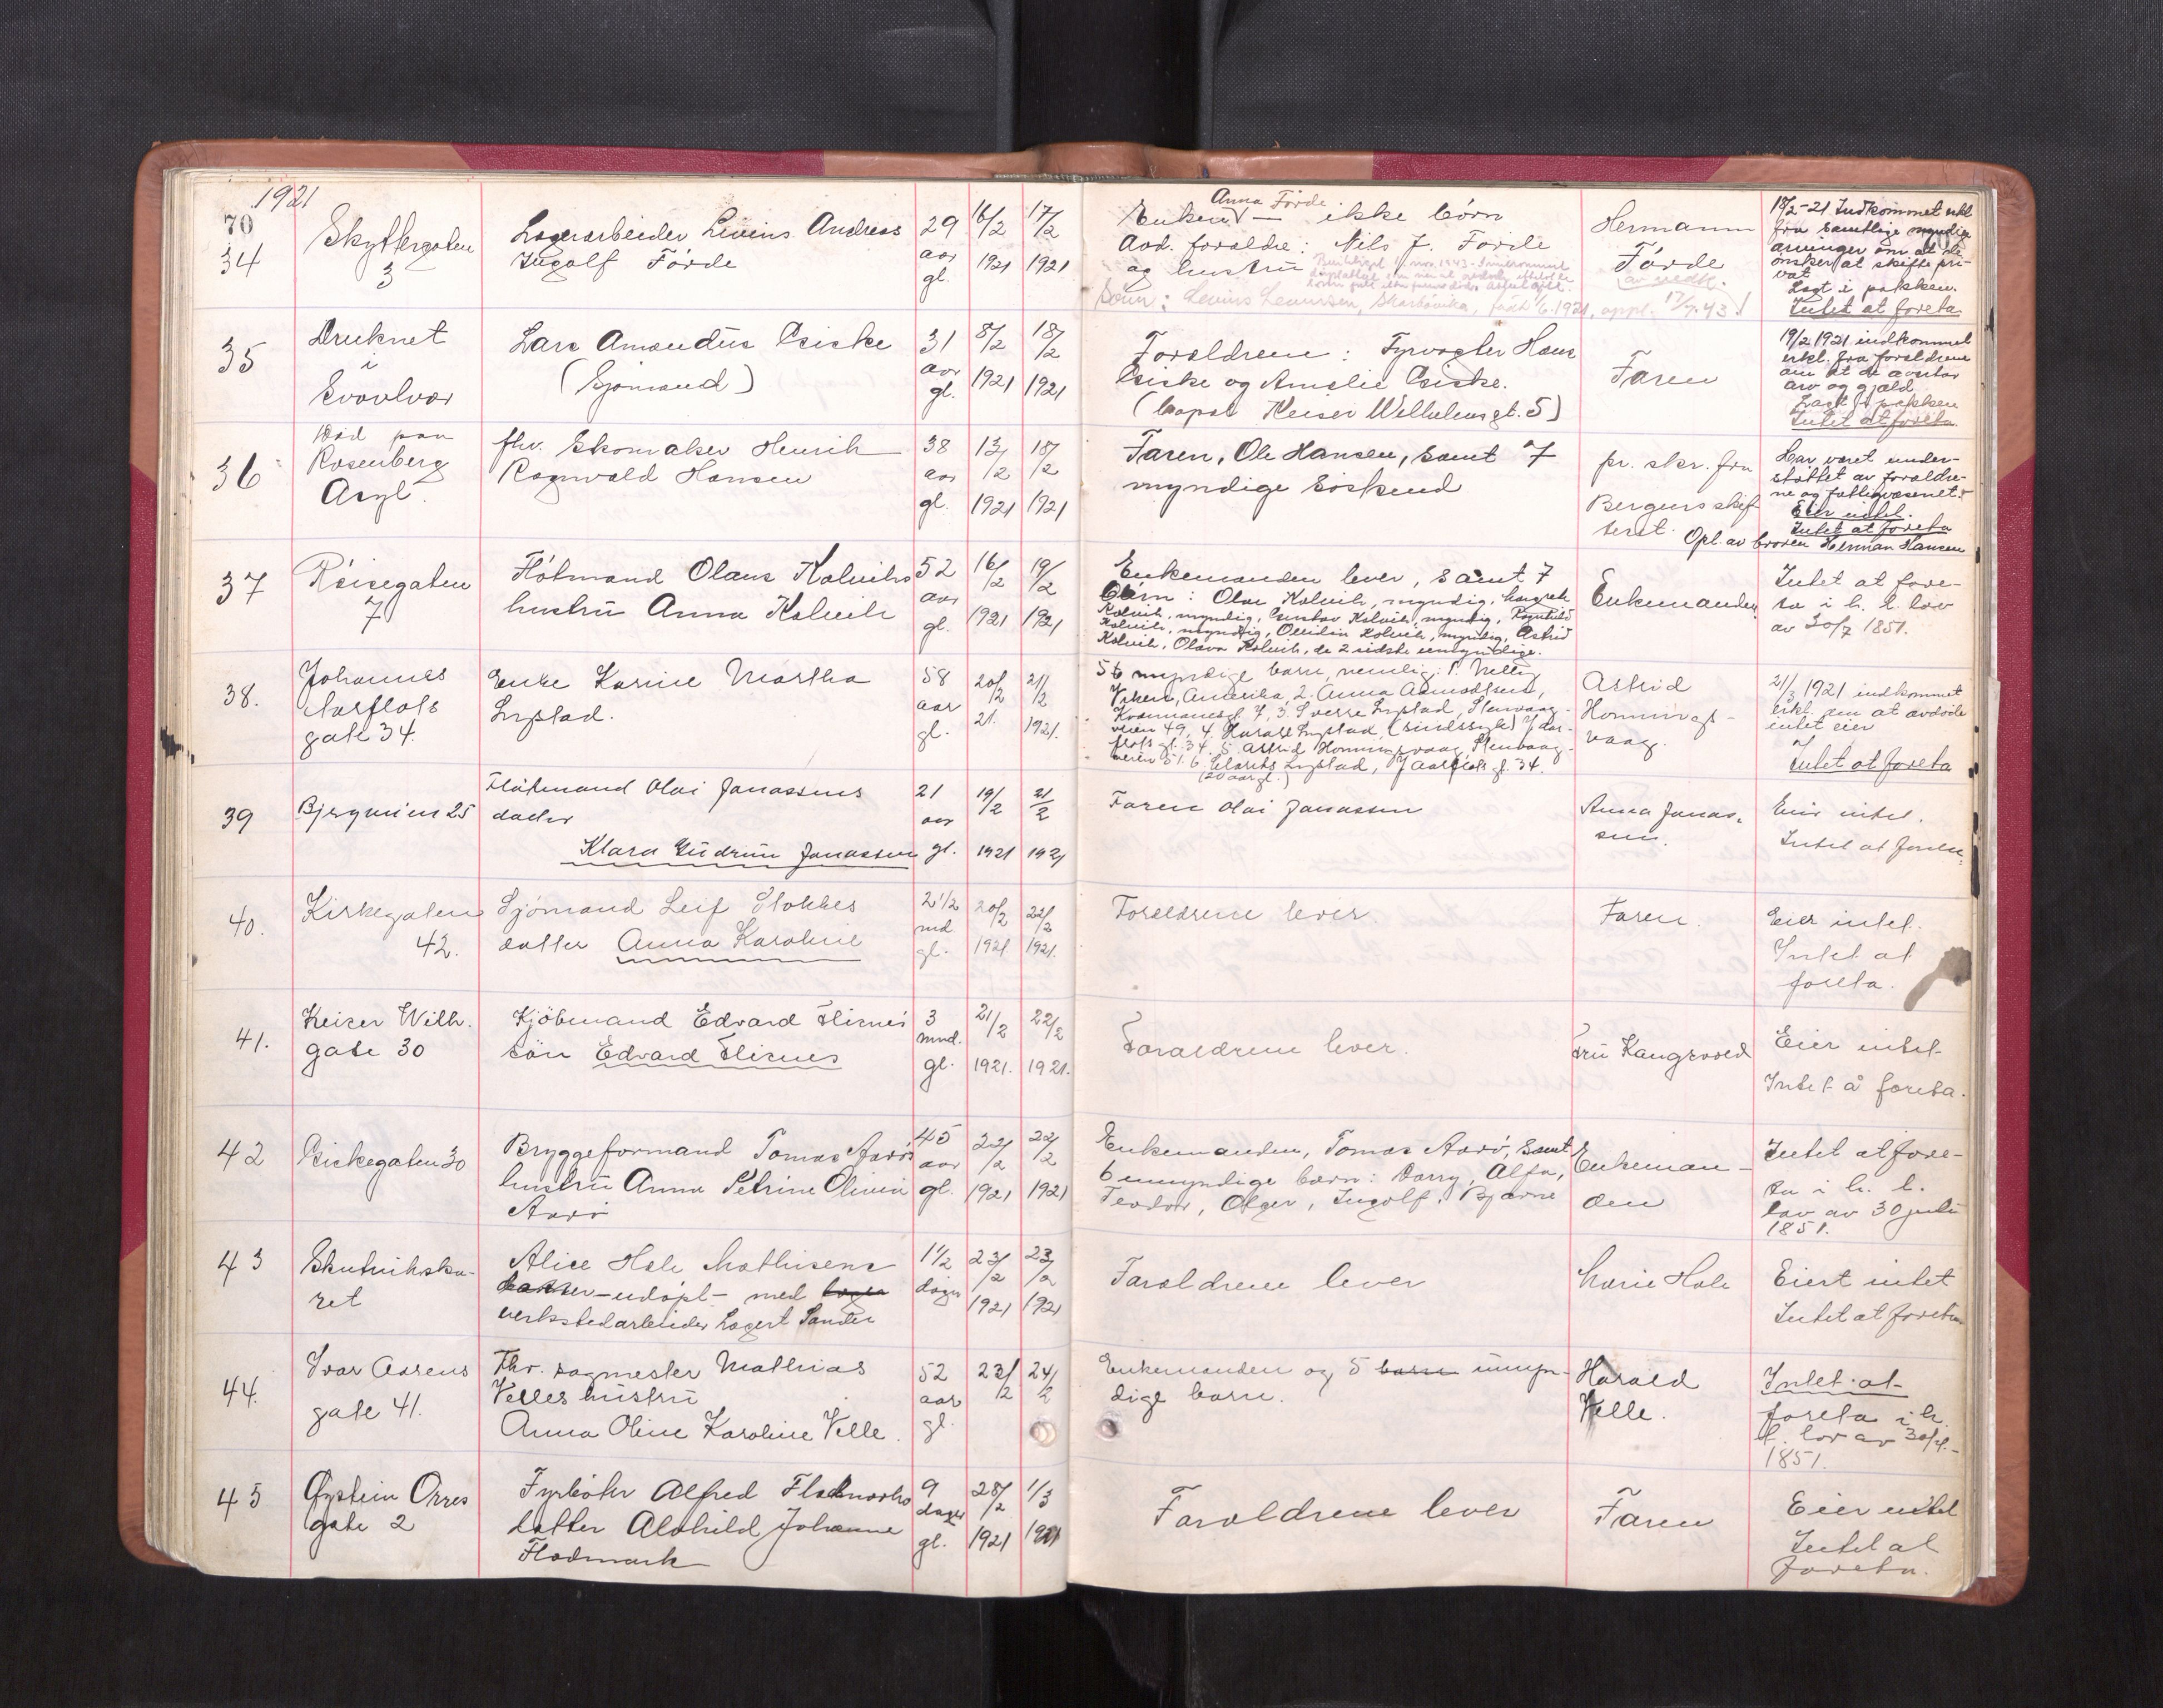 1921
70
34
Skyttergaten
3
Lagerarbeider Livius Andreas
Ingolf Förde
29
aar
gl.
16/2
1921
17/2
1921
Anna Förde
Enken — ikke börn
Avd. foraldre: Nils J. Förde
og hustru
Sönn: Levius Leviussen, Skarbövika, född 1/6.1921, appl. 17/7.43
Hermann
Förde
av vedk.
18/2-21 Indkommet erkl
fra samtlige myndige
arvinger om at de
ønsker at skifte pri-
vat
Lagt i pakken.
Intet at foreta
35
Druknet
i
Svolvær
Lars Amandus Giske
(Sjömand)
31
aar
gl.
8/2
1921
18/2
1921
Foraldrene: Fyrvogter Hans
Giske og Amalie Giske.
(bopæl Keiser Wilhelms gt. 5)
Faren
19/2 1921 indkommet
erkl. fra foraldrene
om at de overtar
arv og gjæld
Lagt i pakken
Intet at foreta
36
Död paa
Rosenberg
Asyl.
fhv. Skomaker Henrik
Ragnvald Hansen
38
aar
gl.
13/2
1921
18/2
1921
Faren, Ole Hansen, samt 7
myndige söskend
pr. skr. fra
Bergens skif
teret.
Har været under-
støttet av foraldre-
ne og fattigvæsenet.
Eier intet.
Intet at foreta
Opl. av broren Herman Hansen
37
Röisegaten
7
Flötmand Olaus Kolviks
hustru Anna Kolvik
52
aar
gl.
16/2
1921
19/2
1921
Enkemanden lever, samt 7
börn: Olav Kolvik, myndig, Margrete
Kolvik, myndig, Gustav Kolvik, myndig, Ragnhild
Kolvik, myndig, Ollidin Kolvik, myndig, Astrid
Kolvik, Olava Kolvik, de 2 sidste umyndige.
Enkemanden
Intet at fore-
ta i h. t. lov
av 30/7 1851.
38.
Johannes
Aarflots
gate 34.
Enke Karine Martha
Lystad.
58
aar
gl.
20/2
21.
21/2
1921.
6 myndige barn, nemlig: 1. Nelly
Amerika, 2. Anna
3. Sverre Lystad, Stenvaag-
veien 49, 4. Harald Lystad, (sindssyk) J. Aar-
flots gt. 34. 5. Astrid Honningsvaag, Stenvaag-
veien 51. 6 Lystad, J. Aarflots g. 34.
(20 aar gl.)
Astrid
Honningsvaag.
21/3 1921 indkommet
erkl. om at avdöde
intet eier
Intet at foreta
39
Bjergveien 25
Flötmand Olai Jonassens
datter
Klara Gudrun Jonassen
21
aar
gl.
19/2
1921
21/2
1921
Faren Olai Jonassen
Anna Jonas-
sen.
Eier intet.
Intet at foreta
40.
Kirkegaten
42.
Sjömand Leif Stokkes
datter Anna Karoline
2 1/2
md.
gl.
20/2
1921
22/2
1921.
Foreldrene lever.
Faren.
Eier intet.
Intet at
foreta.
41.
Keiser Wilh.
gate 30
Kjöbmand Edvard Flisnes
sön Edvard Flisnes
3
mnd.
gl.
21/2
1921.
22/2
1921.
Foraldrene lever.
Fru Kaugsvold
Eier intet
Intet å foreta.
42
Giskegaten 30
Bryggeformand Tomas Aarös
hustru Anna Petrine Olivia
Aarö
45
aar
gl.
22/2
1921
22/2
1921
Enkemanden, Tomas Aarö, samt
6 umyndige barn: Borry, Alfa,
Teodor, Olger, Ingolf, Bjarne
Enkeman-
den
Intet at fore-
ta i h. t.
lov av 30 juli
1851.
43
Skutvikska-
ret
Alice Hole Mathisens
datter — udöpt — med
verkstedarbeider Lagert Sander
1 1/2
dögn
23/2
1921
23/2
1921
Foraldrene lever
Marie Hole
Eiert intet
Intet at foreta
44.
Ivar Aasens
gate 41.
Fhv. sagmester Mathias
Velles hustru
Anna Oline Karoline Velle.
52
aar
gl.
23/2
24/2
Enkemanden og 5 barn umyn-
dige barn.
Harald
Velle.
Intet at
foreta i h.
t. lov av 30/7-
1851.
45
Øystein Orres
gate 2
Fyrböter Alfred Flodmarks
datter Alvhild Johanne
Flodmark
9
dager
gl.
28/2
1921
1/3
1921
Foraldrene lever
Faren
Eier intet
Intet at
foreta.